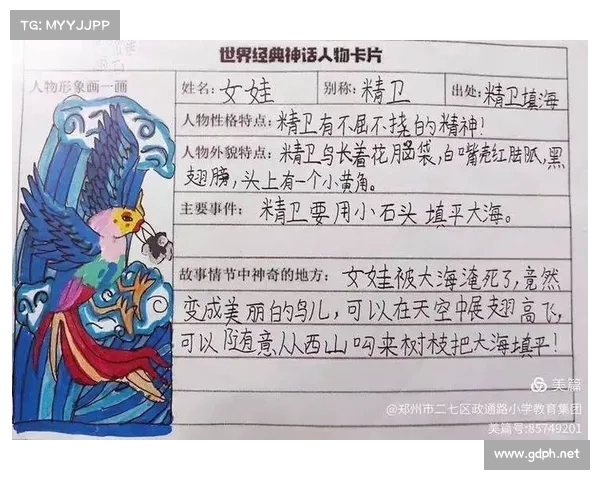 TG: MYYJJPP
世界经典神话人物卡片
人物形象画一画
姓名: 女娃 别称: 精卫 出处: 精卫填海
人物性格特点: 精卫有不屈不挠的精神!
人物外貌特点: 精卫鸟长着花脑袋,白嘴壳红脚趾,黑
翅膀,头上有一个小黄角。
主要事件: 精卫要用小石头填平大海。
故事情节中神奇的地方: 女娃被大海淹死了,竟然
变成美丽的鸟儿,可以在天空中展翅高飞,
可以随意从西山叼来树枝把大海填平!
美篇
@郑州市二七区政通路小学教育集团
美篇号:85749201
www.gdph.net